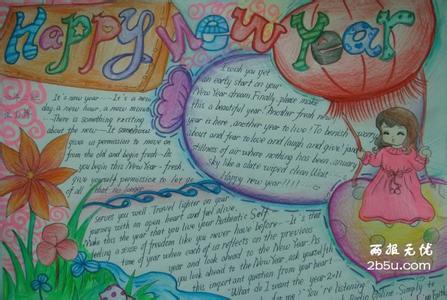 Happy New Year
It's new year---It's a new
day, a new hour, a new minute
There is something exciting
about the new---It somehow
gives us permission to move on
from the old and begin fresh. As
you begin this New Year - fresh,
give yourself permission to let go
of all that no longer
serves you well. Travel lighter on your
journey with an open heart and feel alive.
Make this the year that you live your Authentic Self
feeling a sense of freedom like you never have before---It's that
time of year when each of us reflects on the previous
year and look ahead to the New Year. As
you look ahead to the New Year, ask yourself
this important question from your heart
"What do I want the year 2011
I wish you get
an early start on your
New Year dream. Finally, please make
this a beautiful year! Another fresh new
year is here, another year to live! To banish worry
about and fear to love and laugh and give! January
stillness of air where nothing has been January
sky like a slate wiped clean Wait
Happy new year!!!!
You're listening
Simply to
两报无忧
2b5u.com